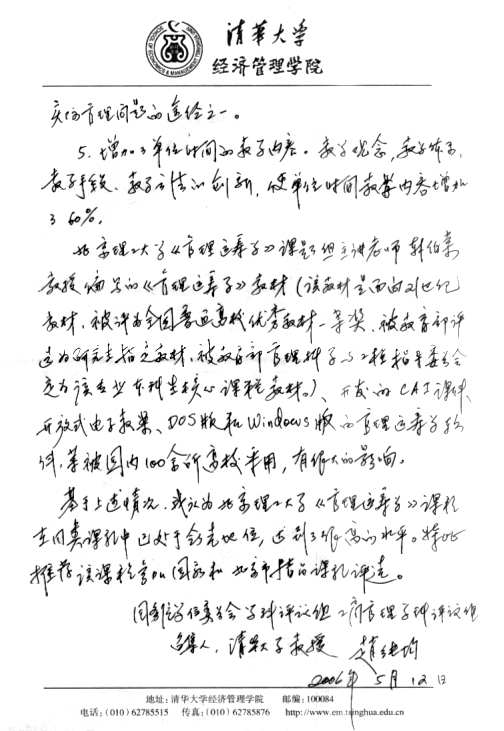 清华大学
经济管理学院
实际管理问题的途径之一。
5. 增加了单位时间的教学内容。教学观念、教学体系、
教学手段、教学方法的创新,使单位时间教学内容增加
了60%。
北京理工大学《管理运筹学》课题组主讲老师韩伯棠
教授编写的《管理运筹学》教材(该教材是面向21世纪
教材,被评为全国普通高校优秀教材一等奖、被教育部评
选为研究生指定教材,被教育部管理科学与工程指导委员会
定为该专业本科生核心课程教材。)、开发的CAI课件、
开放式电子教案、DOS版和Windows版的管理运筹学软
件,等被国内100余所高校采用,有很大的影响。
基于上述情况,我认为北京理工大学《管理运筹学》课程
在同类课程中已处于领先地位,达到了很高的水平。特此
推荐该课程参加国家和北京市精品课程评选。
国务院学位委员会学科评议组工商管理学科评议组
召集人,清华大学教授 赵纯均
2006年5月12日
地址:清华大学经济管理学院 邮编:100084
电话:(010)62785515 传真:(010)62785876 http://www.em.tsinghua.edu.cn